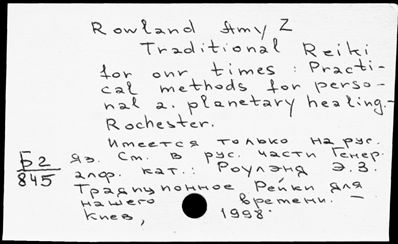 Rowland Amy Z
Traditional Reiki
for our times : Practi-
cal methods for perso-
nal a. planetary healing.-
Rochester.
Имеется только на рус.
яз. См. в рус. части Генер.
алф. кат.: Роулэнд Э. З.
Традиционное Рейки для
нашего времени. -
Киев, 1998.
Б2
845